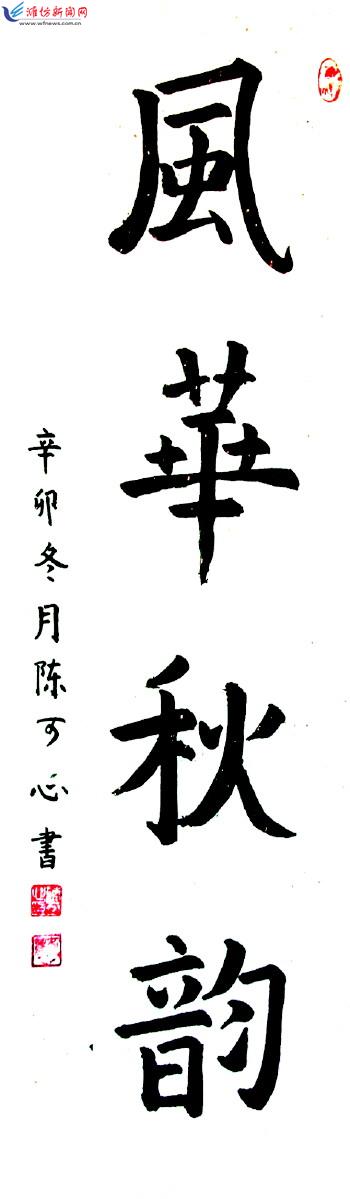 濰坊新闻网
www.wfnews.com.cn
風華秋韵
辛卯冬月陈可心書